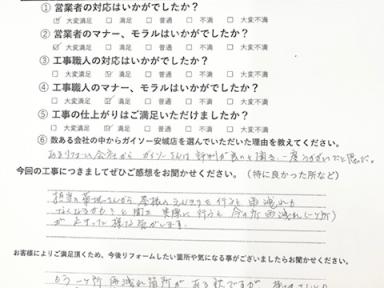 ① 営業者の対応はいかがでしたか?
☑ 大変満足 □ 満足 □ 普通 □ 不満 □ 大変不満
② 営業者のマナー、モラルはいかがでしたか?
☑ 大変満足 □ 満足 □ 普通 □ 不満 □ 大変不満
③ 工事職人の対応はいかがでしたか?
□ 大変満足 ☑ 満足 □ 普通 □ 不満 □ 大変不満
④ 工事職人のマナー、モラルはいかがでしたか?
□ 大変満足 ☑ 満足 □ 普通 □ 不満 □ 大変不満
⑤ 工事の仕上がりはご満足いただけましたか?
□ 大変満足 ☑ 満足 □ 普通 □ 不満 □ 大変不満
⑥ 数ある会社の中からガイソー安城店を選んでいただいた理由を教えてください。
ガイソーさんは評判が良いと聞き
今回の工事につきましてぜひご感想をお聞かせください。(特に良かった所など)
担当の 屋根の を行うと雨漏れが
なくなるかもと聞き 実際に行うと今の所雨漏れ
が止まった様な気がします。
お客様によりご満足頂くため、今後リフォームしたい箇所や気になる事がございましたらお聞かせください。
もう一ヶ所雨漏れ箇所がある